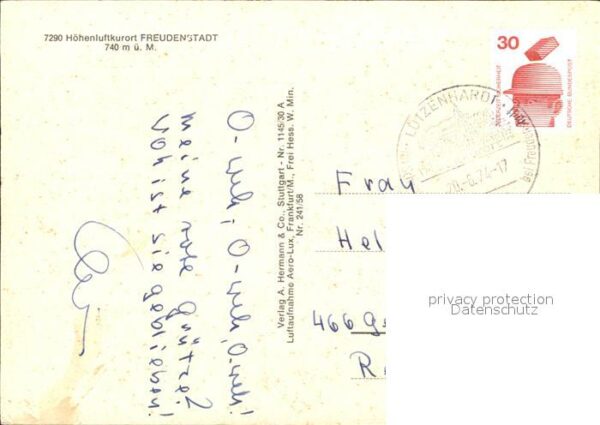 7290 Höhenluftkurort FREUDENSTADT
740 m ü. M.
30
JEDERZEIT SICHERHEIT
DEUTSCHE BUNDESPOST
LÜTZENHARDT
bei Freuden
20.-6.74-17
O-weh, O-weh, O-weh!
meine rote Grütze?
Wo ist sie geblieben!
Verlag A. Hermann & Co., Stuttgart - Nr. 1145/30 A
Luftaufnahme Aero-Lux, Frankfurt/M., Frei Hess. W. Min.
Nr. 241/58
Frau
Hel
466 G
R
privacy protection
Datenschutz